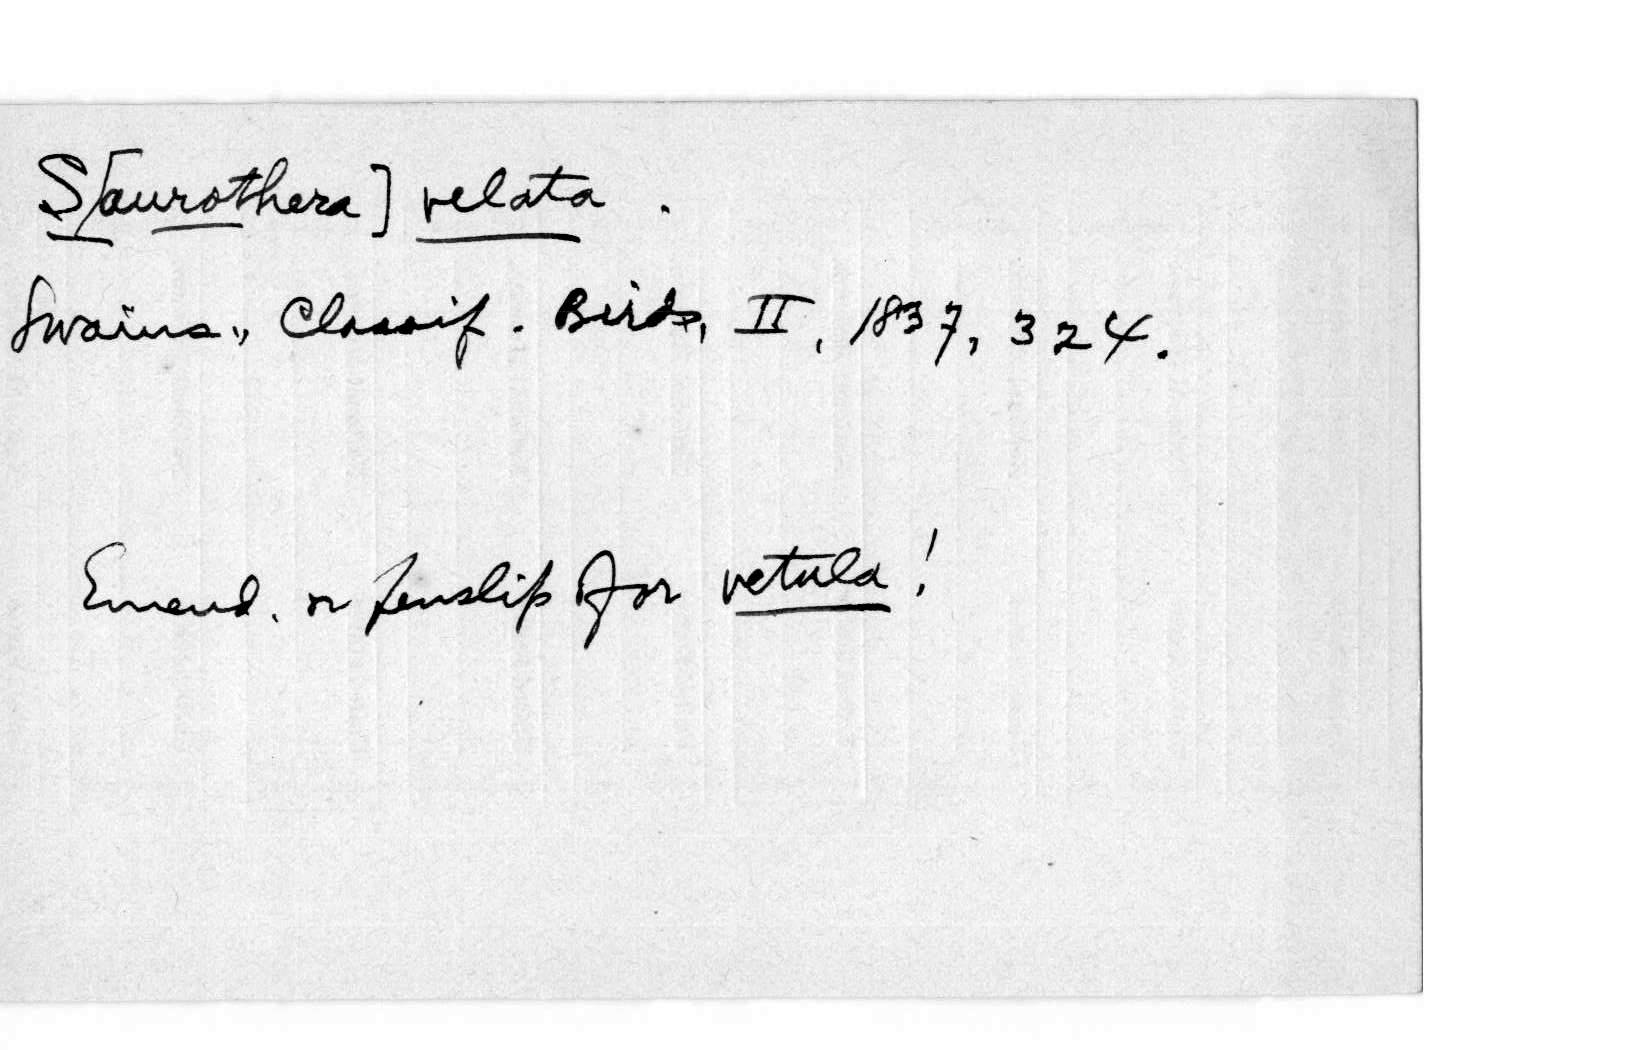 S[aurothera] velata.
Swains., Classif. Birds, II, 1837, 324.
Emend. or penslip for vetula!